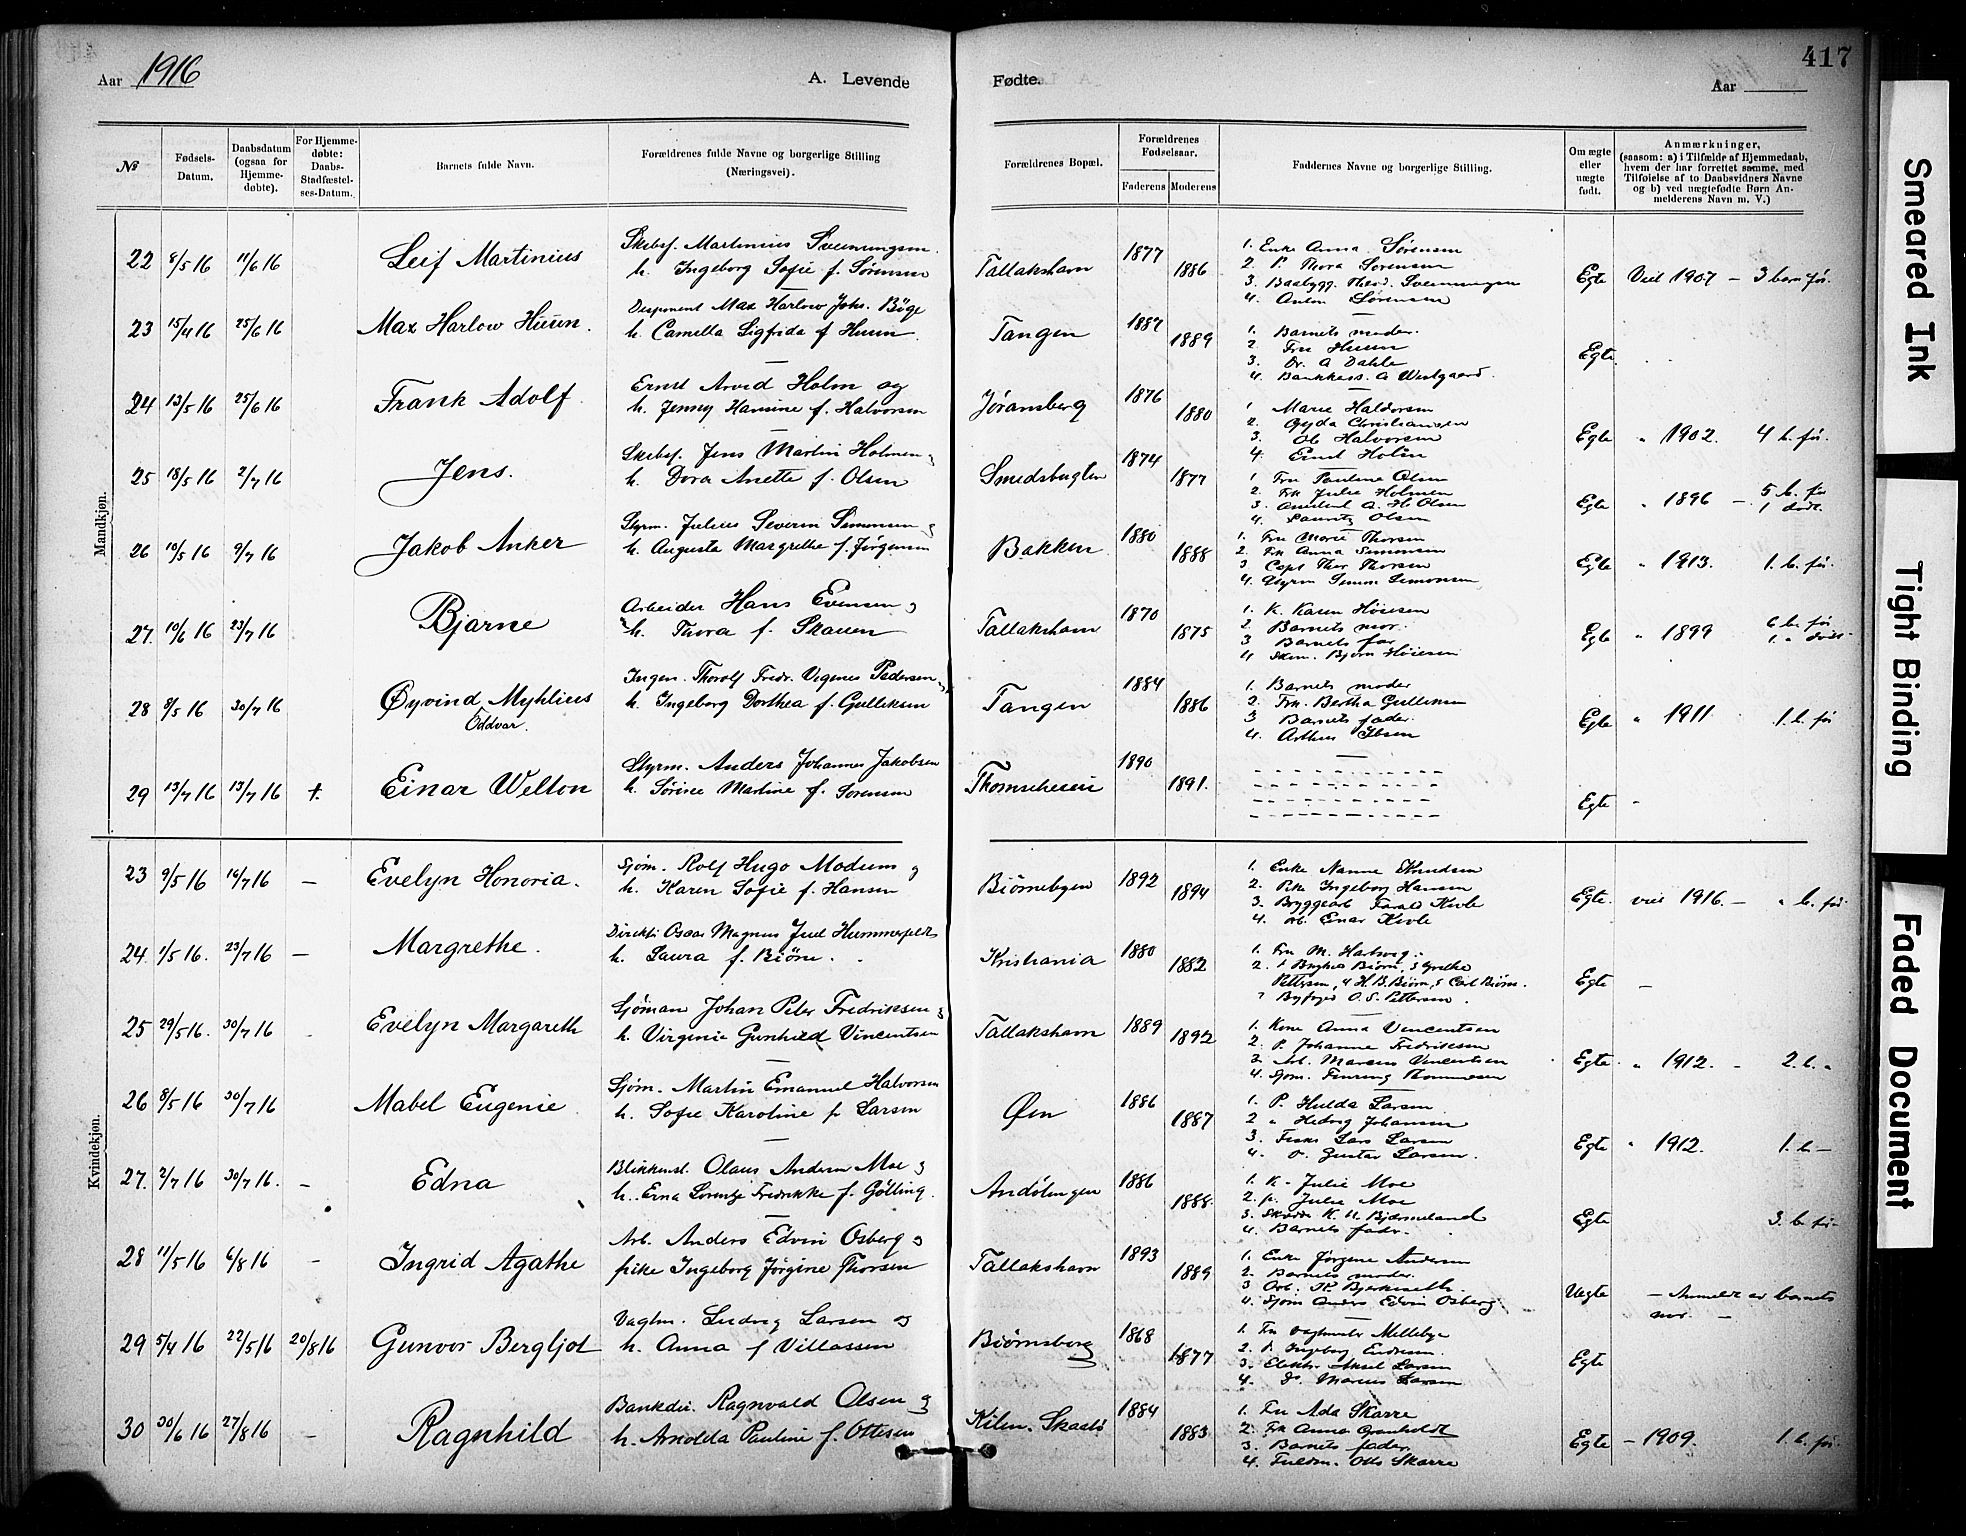 417
Aar 1916
A. Levende Fødte.
Aar
№
Fødsels-Datum.
Daabsdatum (ogsaa for Hjemmedøbte).
For Hjemmedøbte: Daabs-Stadfæstelses-Datum.
Barnets fulde Navn.
Forældrenes fulde Navne og borgerlige Stilling (Næringsvei).
Forældrenes Bopæl.
Forældrenes Fødselsaar.
Faderens Moderens
Faddernes Navne og borgerlige Stilling.
Om ægte eller uægte født.
Anmærkninger, (saasom: a) i Tilfælde af Hjemmedaab, hvem der har forrettet samme, med Tilføielse af to Daabsvidners Navne og b) ved uægtefødte Børn Anmelderens Navn m. V.)
Mandkjøn.
22 8/5 16 11/6 16 Leif Martinius
Skibsf. Martinius Sveinungsen
h. Ingeborg Sofie f. Sørensen
Tallakshavn 1877 1886
1. Enke Anna Sørensen
2. P. Thora Sørensen
3. Baadbygg. Theod. Sveinungsen
4. Anton Sørensen
Egte Viet 1907 – 3 barn før.
23 15/4 16 25/6 16 Max Harlow Huun.
Disponent Max Harlow Johs. Böge
h. Camella Sigfrida f Huun
Tangen 1887 1889
1. Barnets moder.
2. Fru Huun
3. Dr. A Dahle
4. Bankkass. A Westgaard.
Egte
24 13/5 16 25/6 16 Frank Adolf
Ernst Arvid Holm og
h. Jenny Hansine f. Halvorsen
Jøransberg 1876 1880
1 Marie Haldorsen
2. Gyda Christiansen
3. Ob Halvorsen
4. Ernst Holm
Egte " 1902. 4 b. før.
25 18/5 16 2/7 16 Jens.
Skibsf. Jens Martin Holmen og
h. Dora Anette f. Olsen
Smedsbugten 1874 1877
1 Fru Pauline Olsen
2. Frk Julie Holmen
3. A. H. Olsen
4. Lauritz Olsen
Egte " 1896 – 5 b. før
1 død.
26 10/5 16 9/7 16 Jakob Anker
Styrm. Julius Severin Simonsen og
h. Augusta Margrethe f. Jørgensen
Bakken 1880 1888
1. Fru Marie Thorsen
2. Frk Anna Simonsen
3 Capt Thor Thorsen
4. Styrm Simon Simonsen
Egte " 1913. 1 b. før.
27. 10/6 16 23/7 16 Bjarne
Arbeider Hans Evensen og
h. Thora f. Skauen
Tallakshavn 1870 1875
1. K. Karen Høiesen
2. Barnets mor.
3 Barnets far
4 Skom. Bjørn Høiesen
Egte " 1899 6 b. før
1 " død
28 8/5 16 30/7 16 Øyvind Myhlius
Oddvar.
Ingen. Thorolf Fredr. Vegnes Pedersen og
h. Ingeborg Dorthea f. Gulliksen
Tangen 1884 1886
1. Barnets moder
2. Frk. Bertha Gulliksen
3 Barnets fader.
4. Arthur Ibsen
Egte " 1911. 1 b. før
29 13/7 16 13/7 16 †. Einar Welton
Styrm. Anders Johannes Jakobsen
h. Sørine Martine f. Sørensen
Thomseheien 1890 1891.
Egte –
Kvindekjøn.
23 9/5 16 16/7 16 – Evelyn Honoria.
Sjøm. Rolf Hugo Modum og
h. Karen Sofie f. Hansen
Bjørnebyen 1892 1894
1. Enke Nanne Knudsen
2. Pike Ingeborg Hansen
3. Bryggearb Harald Kivle
4. Arb. Einar Kivle
Egte. viet 1916. – " b. før
24. 1/5 16. 23/7 16 – Margrethe.
Direktr Oscar Magnus Juul Hammerfeldt
h. Laura f. Biørn.
Kristiania 1880 1882
1. Fru M. Hartwig.
2. Biørn, 3 Grethe
Pettersen, 4 H. B. Biørn, 5 Carl Biørn.
Byfoged O. S. Pettersen.
Egte –
25 29/5 16. 30/7 16 Evelyn Margareth
Sjøman Johan Peter Fredriksen og
h. Virginie Gunhild Vincentsen
Tallakshavn 1889 1892
1. Kone Anna Vincentsen
2. P. Johanne Fredriksen
3. Arb. Marcus Vincentsen
4. Sjøm. Thommesen
Egte " 1912. – 2 b. "
26 8/5 16 30/7 16 Mabel Eugenie
Sjøm. Martin Emanuel Halvorsen
h. Sofie Karoline f Larsen
Øen 1886 1887
1. P. Hulda Larsen
2 " Hedvig Johansen
3. Fisker Lars Larsen
4. o. Gustav Larsen.
Egte " 1912. 1 b –
27. 2/7 16 30/7 16. – Edna
Blikkensl. Olaus Andersen Moe og
h. Erna Lorentze Fredrikke f. Gölling.
Andølingen 1886 1888.
1. K. Julie Moe
2. p. Julie Moe
3. K. U. Bjørneland
4. Barnets fader.
Egte 3. b. før
28 11/5 16 6/8 16 – Ingrid Agathe
Arb. Anders Edvin Osberg og
pike Ingeborg Jørgine Thorsen
Tallakshavn 1893 1889
1. Enke Jørgine Andersen
2. Barnets moder.
3 Arb. K. Bjerkeseth
4. Sjøm Anders Edvin Osberg
Uegte – Anmeldt av barnets
mor. –
29 5/4 16 22/5 16 20/8 16 Gunvor Bergljot
Vagtm. Ludvig Larsen og
h. Anna f Villassen
Biørnsborg 1868 1877
1. Fru vagtmester Mellebye
2. P. Ingeborg Endresen.
3. Elektr. Aksel Larsen
4. Do. Marius Larsen
Egte
30 30/6 16 27/8 16 – Ragnhild
Bankdir. Ragnvald Olsen og
h. Anolda Pauline f. Ottesen
Kilen. Skaatø 1884 1883
1. Fru Ada Skarre
2. Frk Anna Granholdt
3. Barnets fader.
4. Fuldm. Otto Skarre
Egte – 1909. 1 b. før.
Smeared Ink
Tight Binding
Faded Document